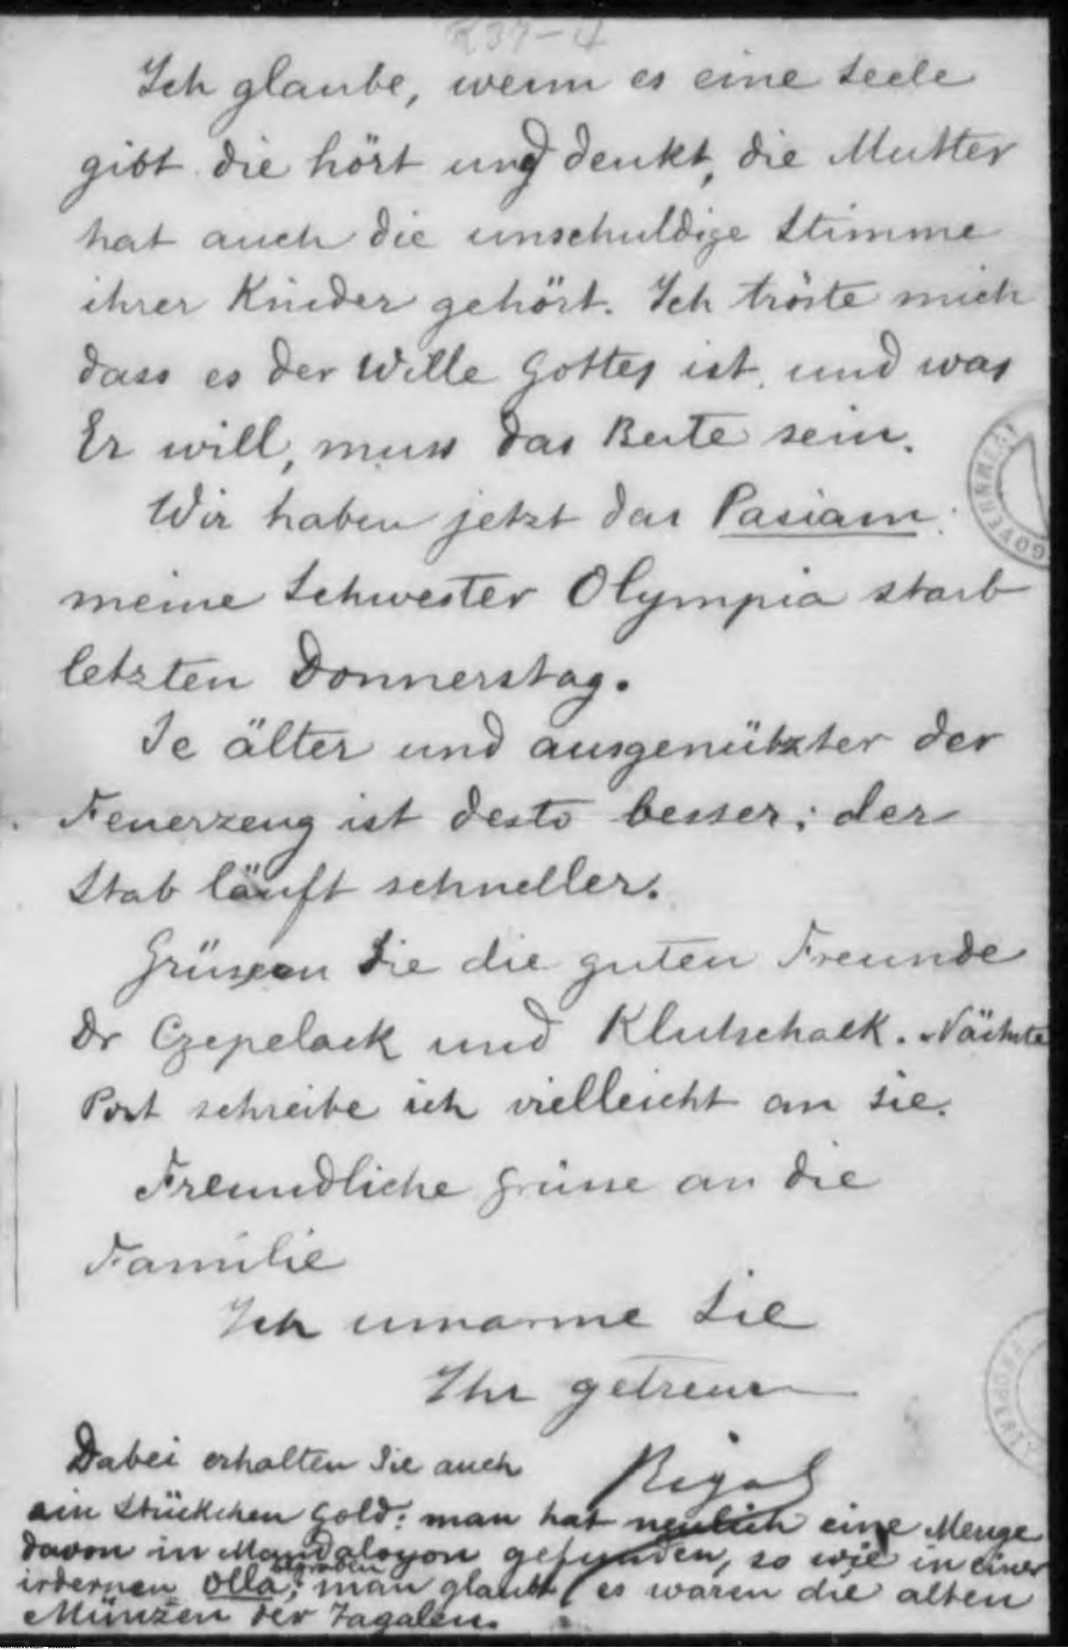 R37-4
Ich glaube, wenn es eine Seele
gibt die hört und denkt, die Mutter
hat auch die unschuldige Stimme
ihrer Kinder gehört. Ich tröste mich
dass es der Wille Gottes ist, und was
Er will, muss das Beste sein.
Wir haben jetzt das Pasiam:
meine Schwester Olympia starb
letzten Donnerstag.
Je älter und ausgenützter der
Feuerzeug ist desto besser; der
Stab läuft schneller.
Grüssen Sie die guten Freunde
Dr Czepelack und Klutschack. Nächste
Post schreibe ich vielleicht an sie.
Freundliche Grüsse an die
Familie
Ich umarme Sie
Ihr getreuer
Rizal
Dabei erhalten Sie auch
ein Stückchen Gold: man hat neulich eine Menge
davon in Mandaloyon gefunden, so wie in einer
irdernen Olla; man glaubt es waren die alten
Münzen der Tagalen.
GOVERNMENT
PROPERTY